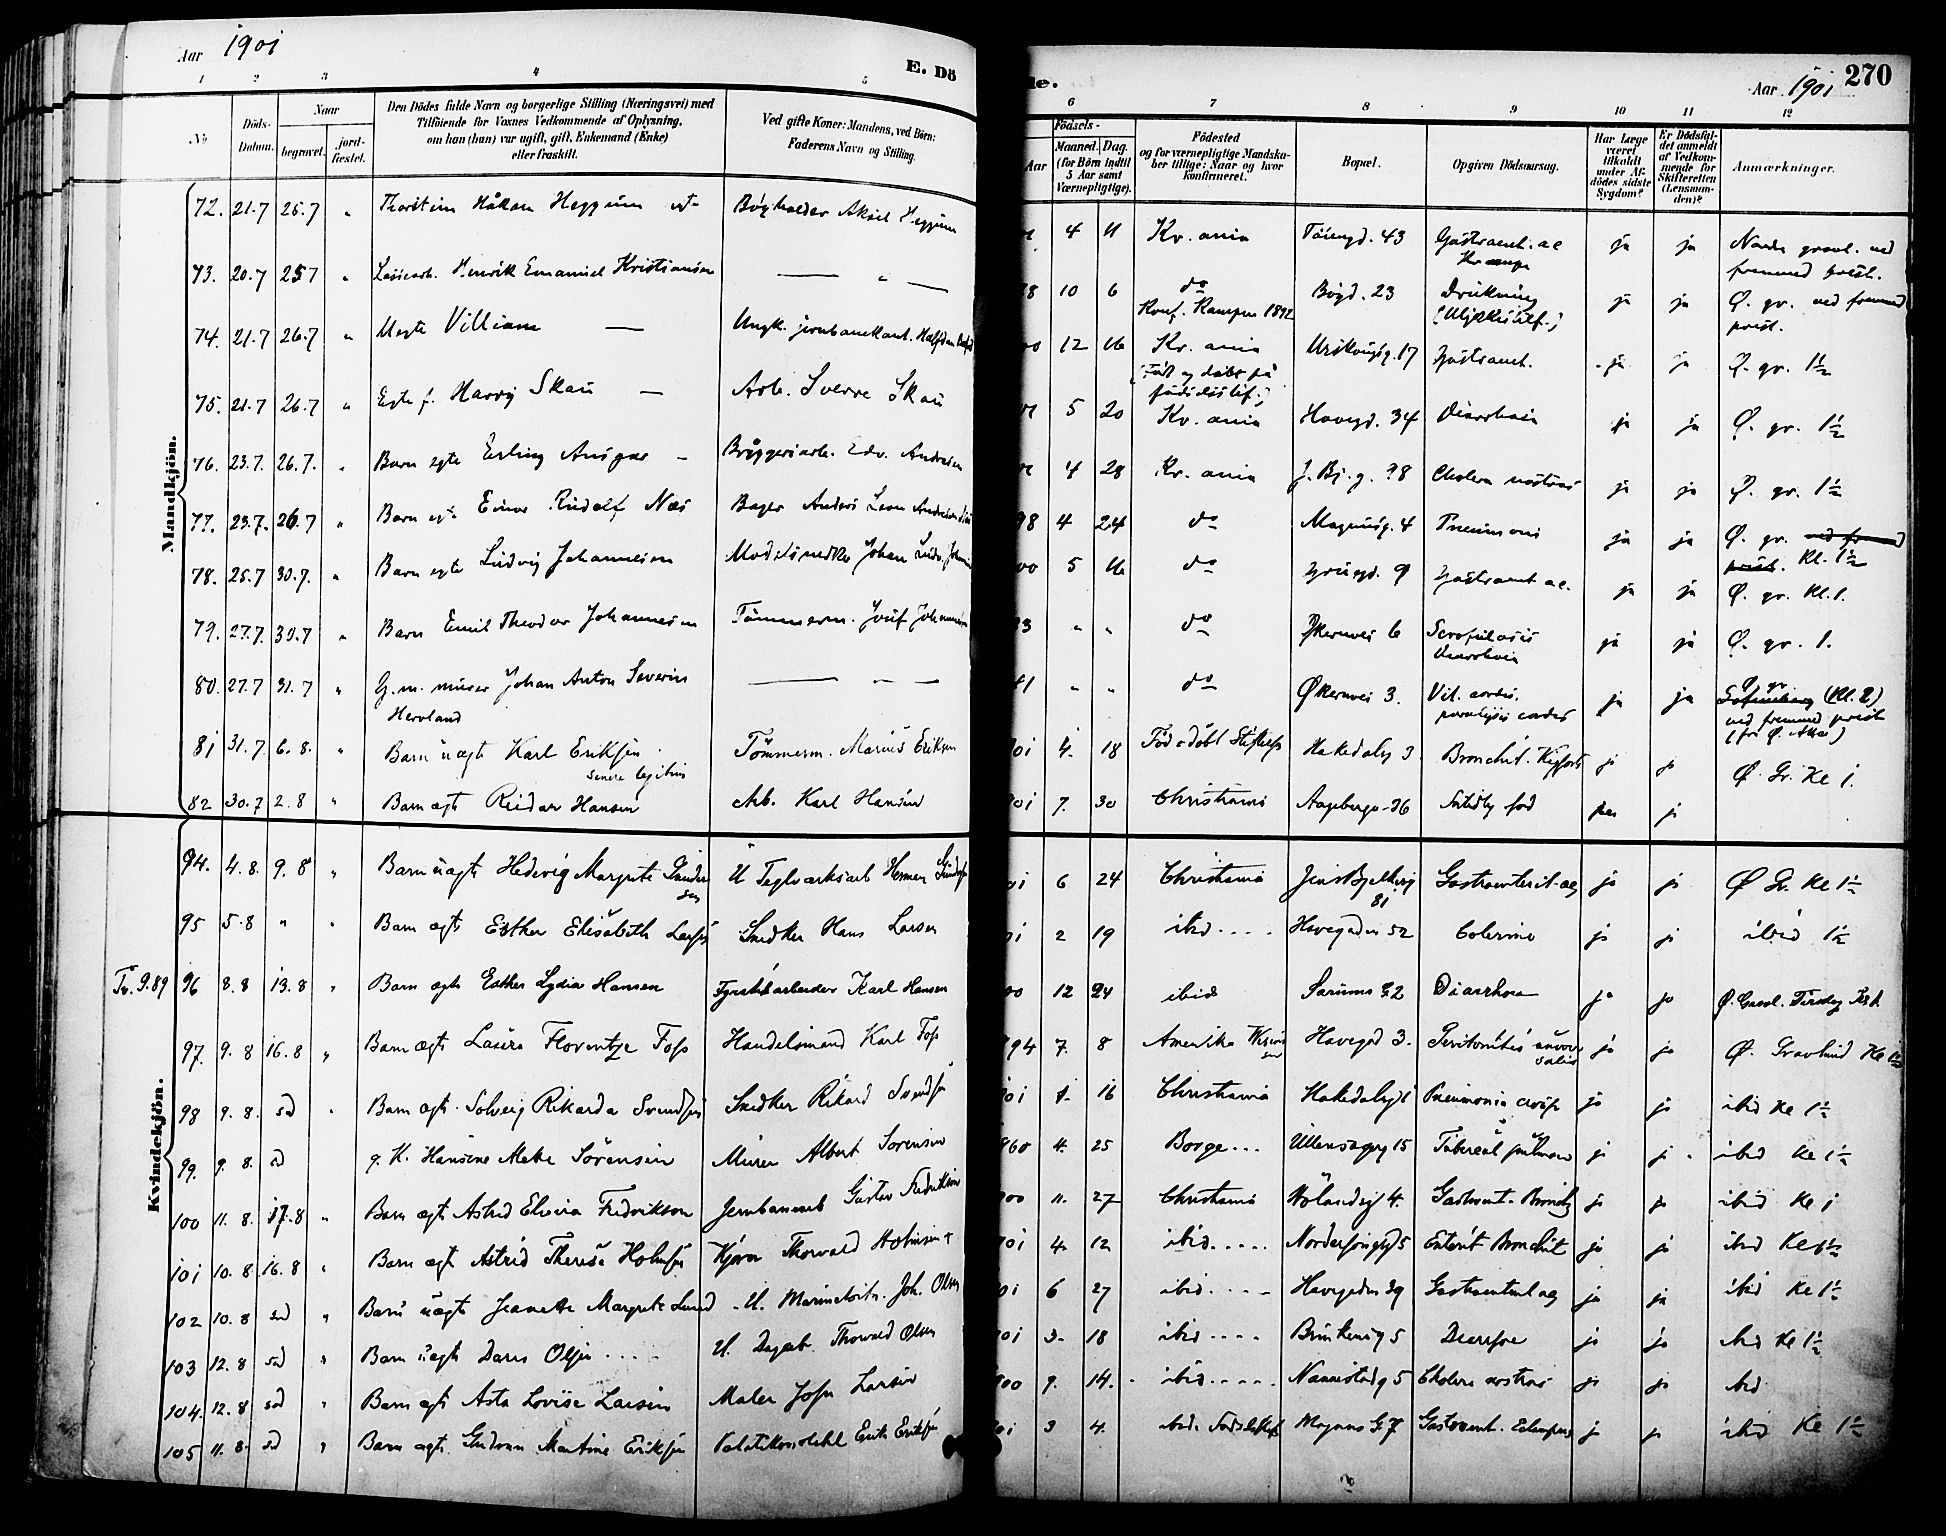 Aar 1901
E. Dö
de.
Aar 1901
270
1 2 3 4 5 6 7 8 9 10 11 12
No
Döds-Datum.
Naar
begravet.
jord-fæstet.
Den Dödes fulde Navn og borgerlige Stilling (Næringsvei) med
Tilföiende for Voxnes Vedkommende af Oplysning,
om han (hun) var ugift, gift, Enkemand (Enke)
eller fraskilt.
Ved gifte Koner: Mandens, ved Börn:
Faderens Navn og Stilling.
Födsels-
Aar
Maaned. Dag.
(for Börn indtil
5 Aar samt
Værnepligtige).
Födested
og for værnepligtige Mandska-
ber tillige: Naar og hvor
konfirmeret.
Bopæl.
Opgiven Dödsaarsag.
Har Læge
været
tilkaldt
under Af-
dödes sidste
Sygdom?
Er Dödsfal-
det anmeldt
af Vedkom-
mende for
Skifteretten
(Lensman-
den)?
Anmærkninger.
Mandkjön.
72. 21.7 25.7 " Thorstein Håkon Heggum Bogholder Aksel Heggum 4 11 Kr.ania Töiengd. 43 Gastroent. ac ja ja Nordre gravl. ved
fremmed prest.
73. 20.7 25.7 " Henrik Emanuel Kristiansen — " — 8 10 6 do Bögd. 23 Drukning ja ja Ø. gr. ved fremmed
Konf. Kampen 1892 (Ulykkestilf.) prest.
74. 21.7 26.7 " Uegte Villiam — Ungk. jernbanekont. Halfdan 00 12 16 Kr.ania Urskougsg. 17 Gastroent. ja ja Ø. gr. 1½
(Föd og döbt på
födselsstif.)
75. 21.7 26.7 " Egte f. Harry Skau — Arb. Sverre Skau 5 20 Kr.ania Havegd. 34 Diarrhoia ja ja Ø. gr. 1½
76. 23.7. 26.7. " Barn egte Erling Ansgar - Bryggeriarb. Edv. Andresen 4 28 Kr.ania J. Bj. g. 78 Cholera nostras ja ja Ø. gr. 1½
77. 23.7. 26.7 " Barn egte Einar Rudolf Næs Bager Anders 98 4 24 do Magnusg. 4 Pneumoni ja ja Ø. gr. ved fremmed
prest. Kl. 1½
78. 25.7 30.7. " Barn egte Ludvig Johannesen Modelsnedker Johan Ludv. 00 5 16 do Grüngd. 9 Gastroent ac. ja ja Ø. gr. Kl. 1.
79. 27.7. 30.7 " Barn Emil Theodor Johannesen Tömmerm. Josef Johannesen 93 " " do Økernvei 6 Scrofulosis ja ja Ø. gr. 1.
Diarrhoia
80. 27.7 31.7 " G.m. murer Johan Anton Severin — " — 41 " " do Økernvei 3. Vit. cordis. ja ja Ø. gr. (Kl. 2)
Hervland paralysis cordis ved fremmed prest
81 31.7. 6.8. " Barn uægt Karl Eriksen Tömmerm. Marius Eriksen 01 4. 18 Föd o döbt Stiftelsen Hakedalsg 3 Bronchit. ja ja Ø Gr. Kl 1.
senere legitim
82 30.7 2.8 " Barn ægt Reidar Hansen Arb. Karl Hansen 01 7. 30 Christiania Aagebergv. 36 födt ja
Kvindekjön.
94. 4.8. 9.8 " Barn uægt Hedevig Margrete Gundersen U Teglværksarb Herman 01 6 24 Christiania Jens Bjelkesg 81 Gastroenterit. ac ja ja Ø Gr. Kl 1½
95 5.8 " " Barn ægt Esther Elisabeth Larsen Snedker Hans Larsen 01 2 19 ibid.... Havegaden 52 Colerine ja ja ibid 1½
Tr. 9.89 96 8.8 13.8 " Barn ægt Esther Lydia Hansen Fyrstikarbeider Karl Hansen 00 12 24 ibid Sörums G 2 Diarrhoe ja ja Ø. Gravl. Tirsdag Kl 1
97. 9.8 16.8 " Barn ægt Laura Florentze Foss Handelsmand Karl Foss 94 7. 8 Amerika Havegad 3. Peritonitis ja ja Ø. Gravlund Kl 1½
98 9.8. sad " Barn ægt. Solveig Rikarda Svendsen Snedker Rikard Svendsen 01 1. 16 Christiania Hakedalsg 1 Pneumonia croup ja ja ibid Kl 1½
99. 9.8. sad g. K. Hansine Mette Sörensen Murer Albert Sorensen 860 4. 25 Borge... Ullensagerg 15 Tubercul pulmon ja ja ibid Kl 1½
100 11.8. 17.8 " Barn ægt Astrid Elvira Fredrikson Jernbanearb Gustav Fredrikson 00 11. 27 Christiania Hölandsg 4. Gastroent. Bronchit ja ja ibid Kl 1
101 10.8 16.8 " Barn ægt Astrid Therese Holmsen Kjörer Thorvald Holmsen 01 4. 12 ibid..... Norderhougsg 5 Enterit Bronchit ja ja ibid Kl 1½
102 10.8 sad " Barn uægt Jeanette Margrete Lund U. Joh. Olsen 01 6 27 ibid.... Havegaden 39 Gastroenterit ac ja ja ibid Kl 1½
103 12.8 sad " Barn uægt Dares Olsen.... U. Dagarb. Thorvald Olsen 01 3. 18 ibid.... Brinkensg 5 Diarrhoe ja ja ibid Kl 1½
104. 12.8 sad " Barn ægt Asta Lovise Larsen Maler Josef Larsen 00 9. 14. ibid..... Nannestadg 5 Cholera nostras ja ja ibid
105 11.8. sad " Barn ægt. Gudrun Martine Eriksen Politikonstabel Erik Eriksen 01 3 4. ibid. Födselsstift Magnus G. 7 Gastroent. Eclampsi ja ja ibid Kl 1½